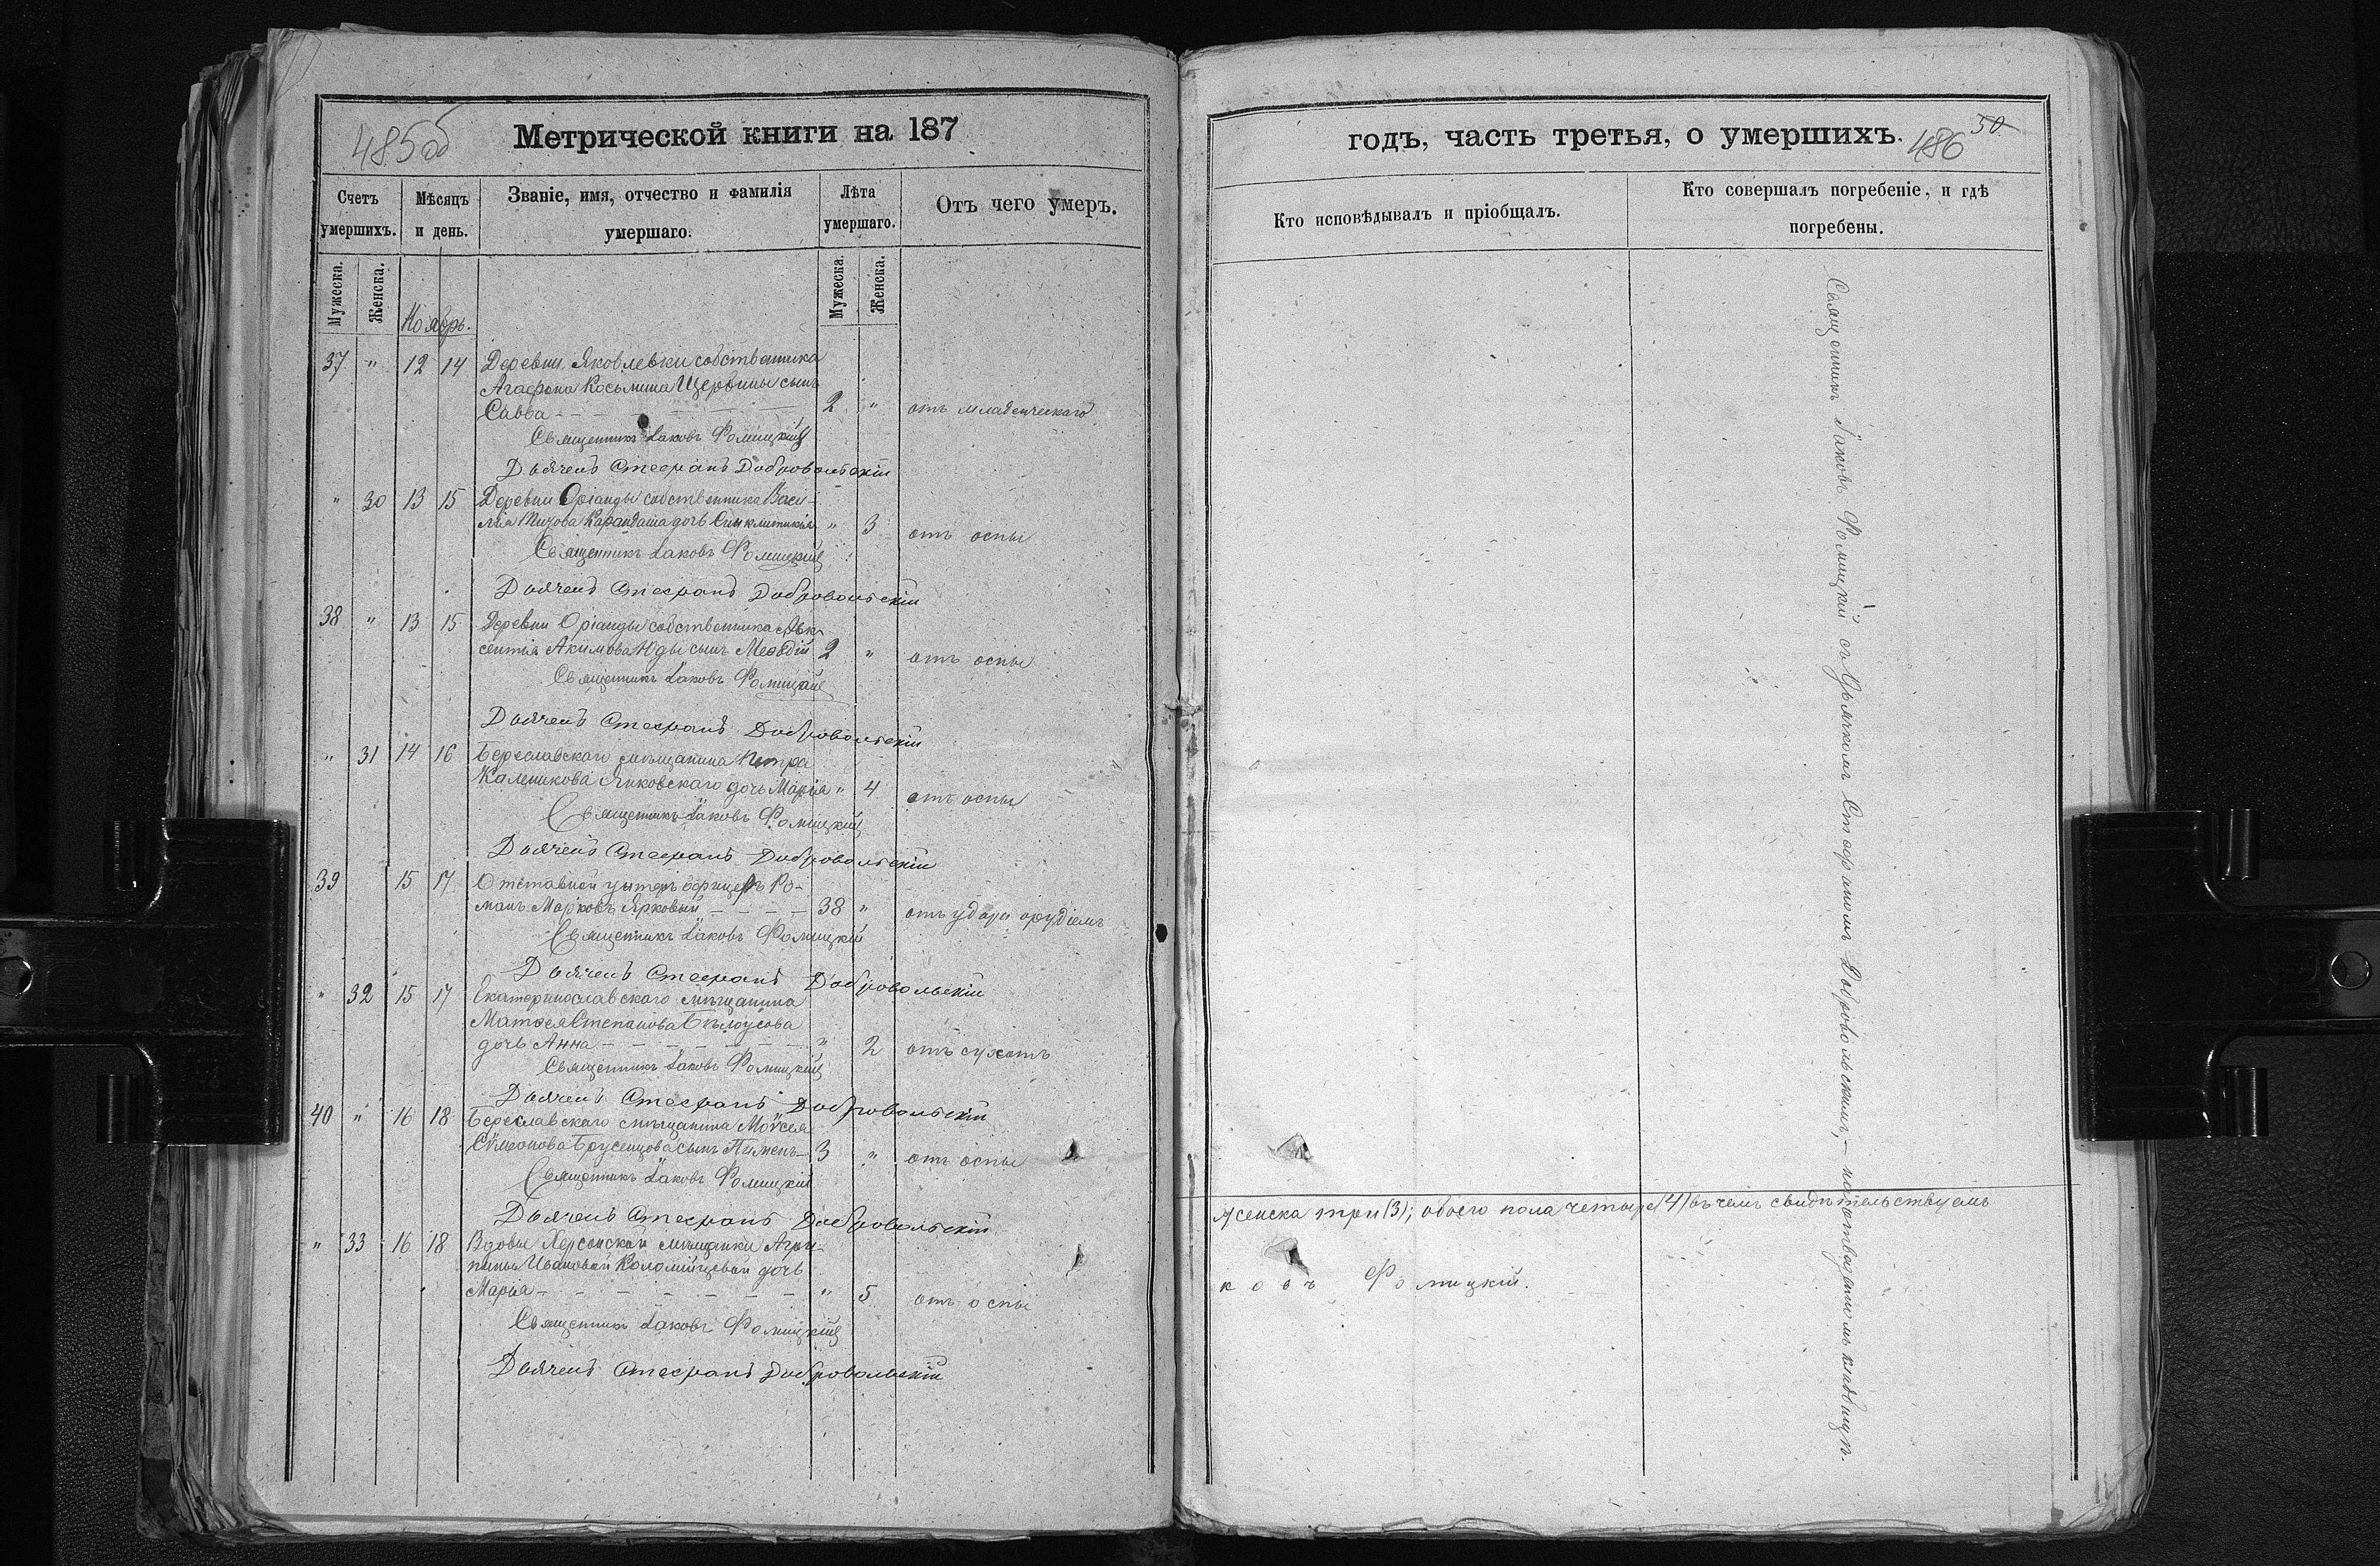 485об
Метрической книги на 187
Счетъ умершихъ.
Мѣсяцъ и день.
Званіе, имя, отчество и фамилія умершаго.
Лѣта умершаго.
Отъ чего умеръ.
Мужеска.
Женска.
Ноябрь.
Мужеска.
Женска.
37 " 12 14 Деревни Яковлевки собственника
Агафона Косьмина Щербины сынъ
Савва 2 " отъ младенческаго
Священникъ Іаковъ Фомицкій
Дьячекъ Стефанъ Добровольскій
" 30 13 15 Деревни Оріанды собственника Васи-
лія Титова Карандаша дочь Синклитикія " 3 отъ оспы
Священникъ Іаковъ Фомицкій
Дьячекъ Стефанъ Добровольскій
38 " 13 15 Деревни Оріанды собственника Авк-
сентія Акимова Юды сынъ 2 " отъ оспы
Священникъ Іаковъ Фомицкій
Дьячекъ Стефанъ Добровольскій
" 31 14 16 Береславскаго мѣщанина Петра
Каленикова Янковскаго дочь Марія " 4 отъ оспы
Священникъ Іаковъ Фомицкій
Дьячекъ Стефанъ Добровольскій
39 15 17 Отставной унтеръ офицеръ Ро-
манъ Марковъ Ярковый 38 " отъ удара орудіемъ
Священникъ Іаковъ Фомицкій
Дьячекъ Стефанъ Добровольскій
" 32 15 17 Екатеринославскаго мѣщанина
Матѳея Степанова Бѣлоусова
дочь Анна " 2 отъ сухотъ
Священникъ Іаковъ Фомицкій
Дьячекъ Стефанъ Добровольскій
40 " 16 18 Береславскаго мѣщанина Моѵсея
Сѵмеонова Брусенцова сынъ Пименъ 3 " отъ оспы
Священникъ Іаковъ Фомицкій
Дьячекъ Стефанъ Добровольскій
" 33 16 18 Вдовы Херсонской мѣщанки Агри-
пины Ивановой Коломійцевой дочь
Марія " 5 отъ оспы
Священникъ Іаковъ Фомицкій
Дьячекъ Стефанъ Добровольскій
годъ, часть третья, о умершихъ.
486
50
Кто исповѣдывалъ и пріобщалъ.
Кто совершалъ погребеніе, и гдѣ погребены.
Священникъ Іаковъ Фомицкій съ дьячкомъ Стефаномъ Добровольскимъ, – на кладбищѣ.
Женска три (3); обоего пола четыре (4) въ чемъ свидѣтельствуемъ
ковъ Фомицкій.